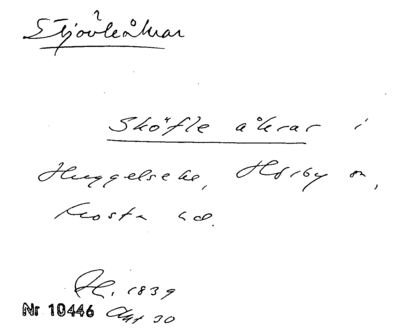 Stjövleåkrar
?
Sköfle åkrar i
Huggelseke, Hörby sn,
Frosta hd.
H. 1839
Nr 10446 Akt 30